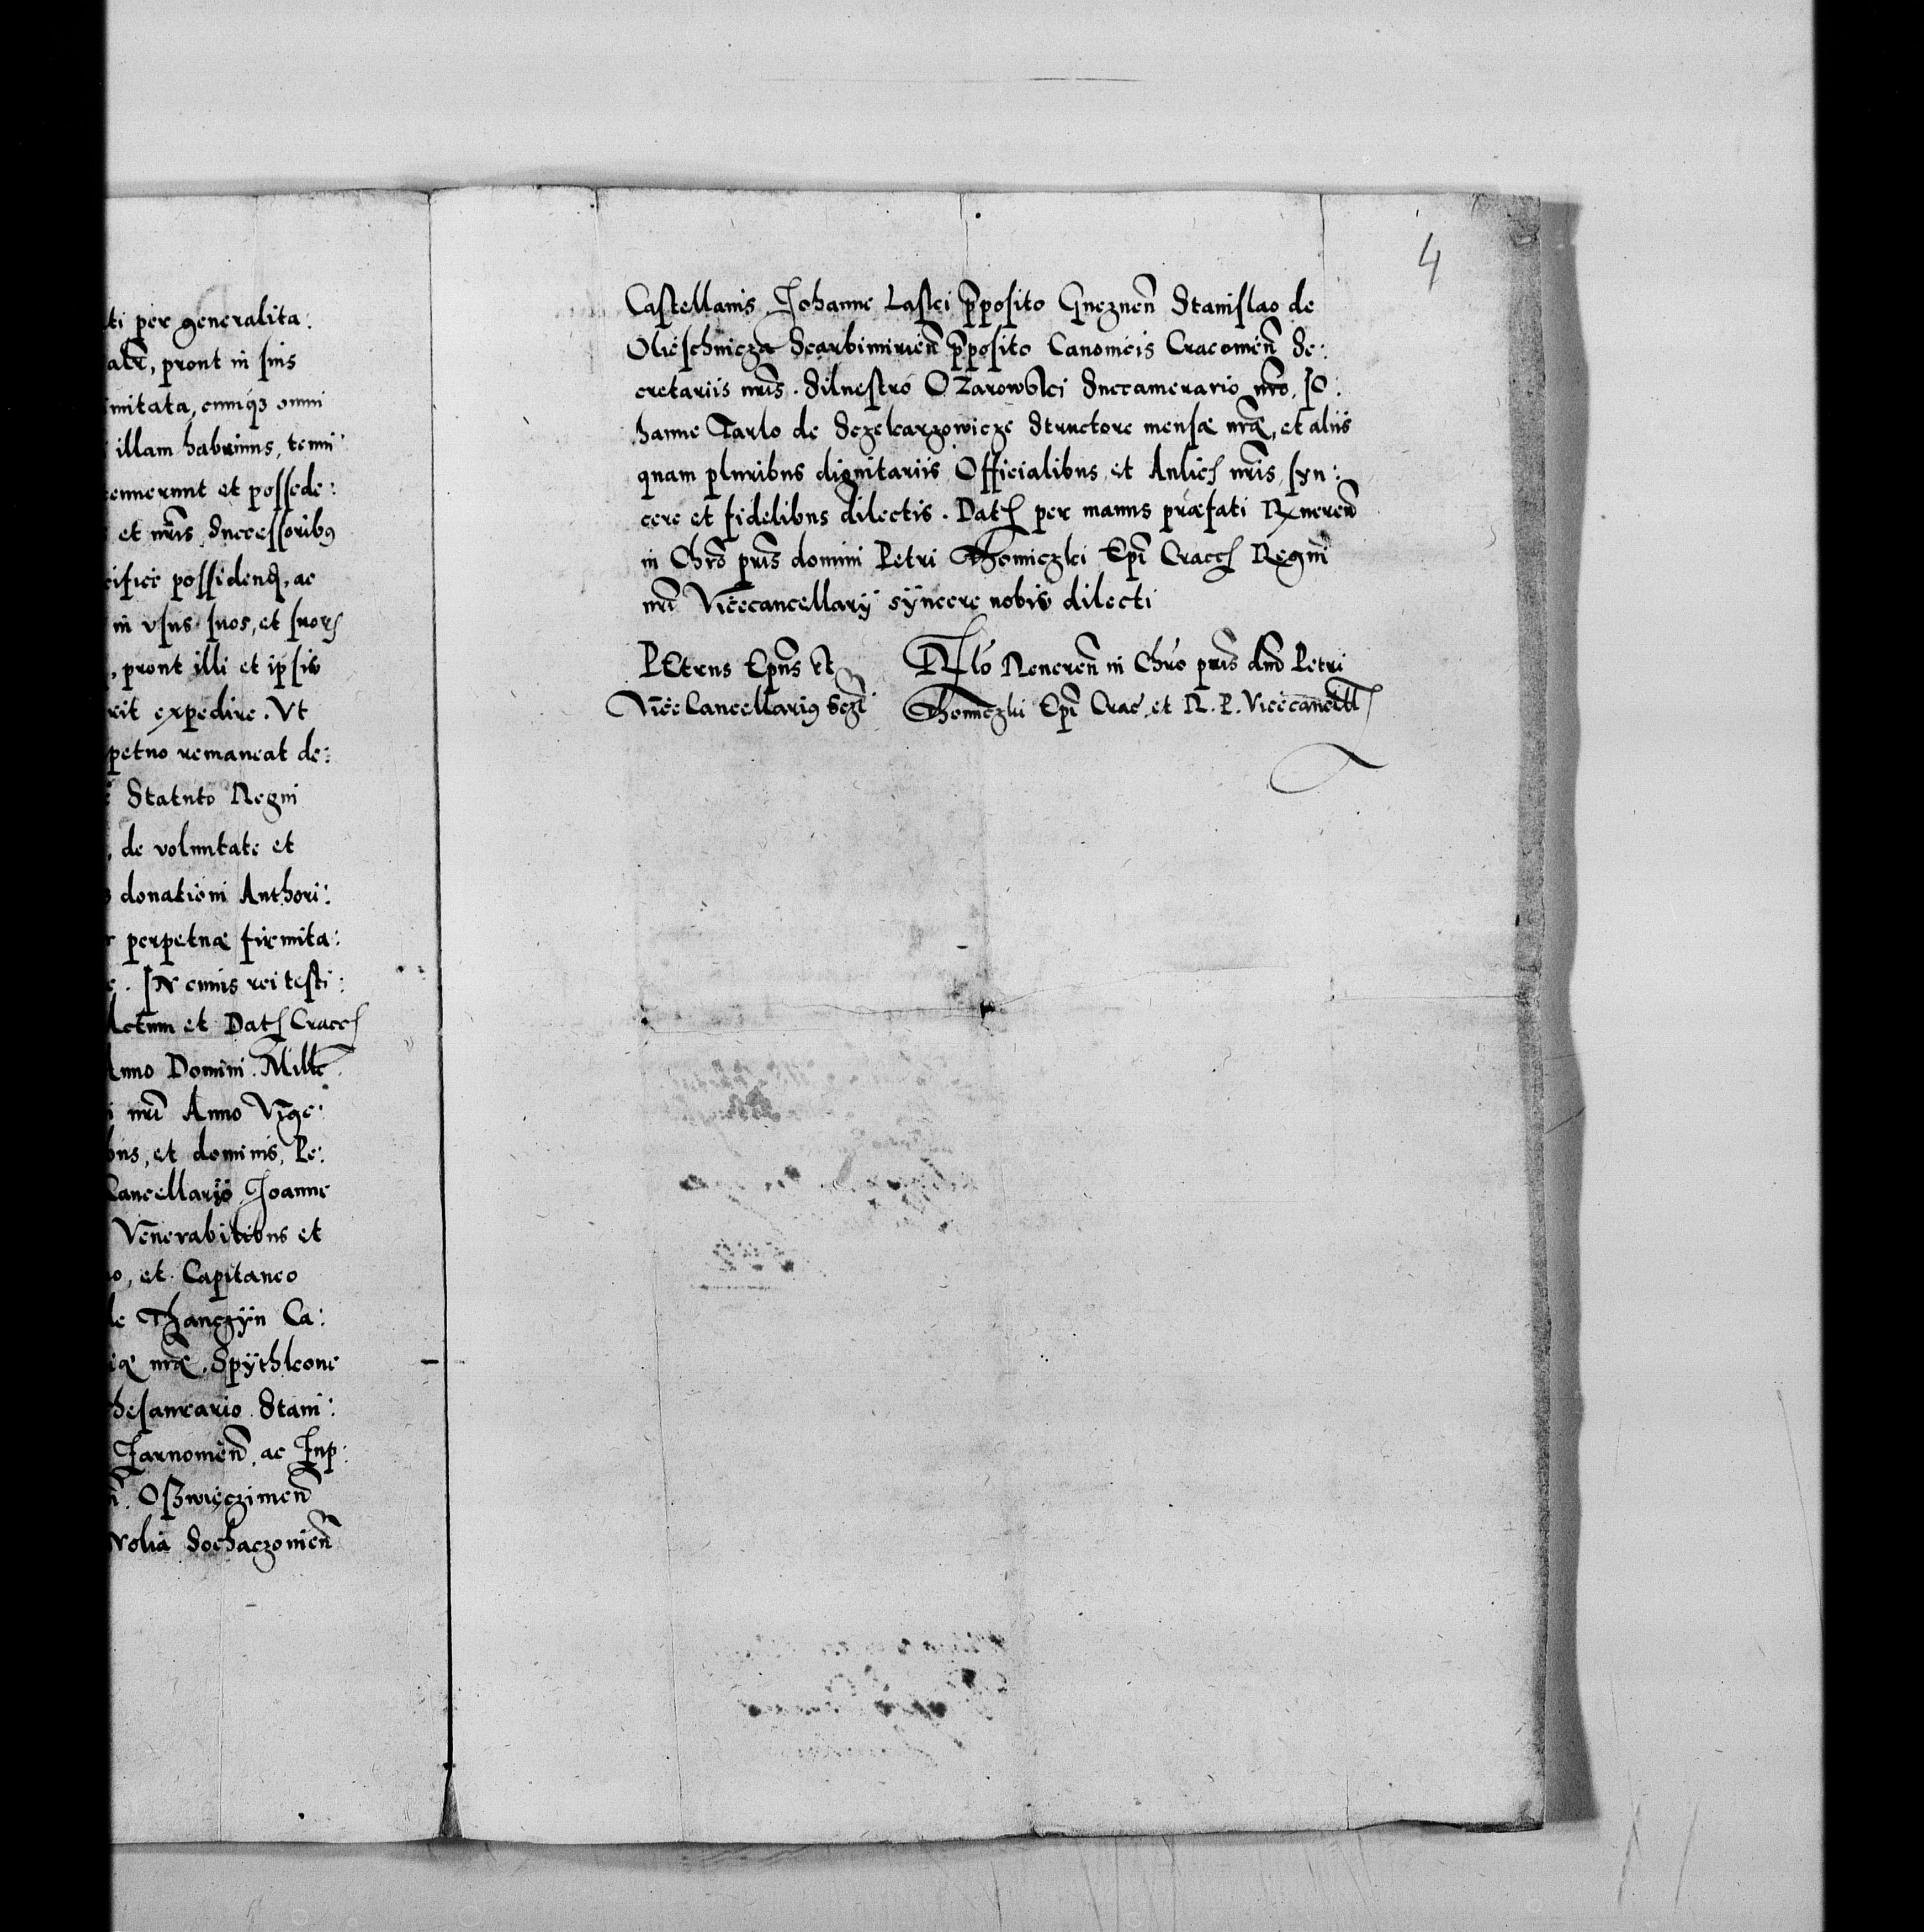 ti per generalita:
atr̄, prout in suis
mitata, cumq3 omni
illam habuimus, tenui:
tenuerunt et possede:
et nr̄is Successoribus
cifice possidend, ac
in usus suos, et suor
, prout illi et ipsis
rit expedire. Vt
petuo remaneat de:
Statuto Regni
, de voluntate et
donationi Authori:
perpetuæ firmita:
. IN cuius rei testi:
Actum et Dat Cracc
Anno Domini Mille
i nr̄i Anno Vige:
bus, et dominis, Pe:
Cancellario Joanne
Venerabilibus et
o, et Capitaneo
de Thanczÿn Ca:
iæ nr̄æ, Spÿthkone
hesaurario Stani:
Zarnouien̄, ac Inp:
n̄. Oswięczimen̄
Wolia Sochaczouien̄
4
Castellanis, Johanne Laski pposito Gneznen̄ Stanislao de
Olieschnicza Scarbimirien̄ pposito Canonicis Cracouien̄ Se:
cretariis nr̄is. Siluestro Ozarowski Succamerario nr̄o, Jo:
hanne Tarlo de Sczekarzowicze Structore mensæ nr̄æ, et aliis
quam pluribus dignitariis Officialibus et Aulic nr̄is, syn:
cere et fidelibus dilectis. Dat per manus præfati Reueren̄
in Chr̄o pr̄is domini Petri Thomiczki Ep̄i Cracc Regni
nr̄i Vicecancellarÿ sÿncere nobis dilecti
PEtrus Ep̄us et
ViceCancellarius
Rlo Reueren̄ in Chr̄o pr̄is dn̄i Petri
Thomiczki Ep̄i Crac et R. P. Vicecancell